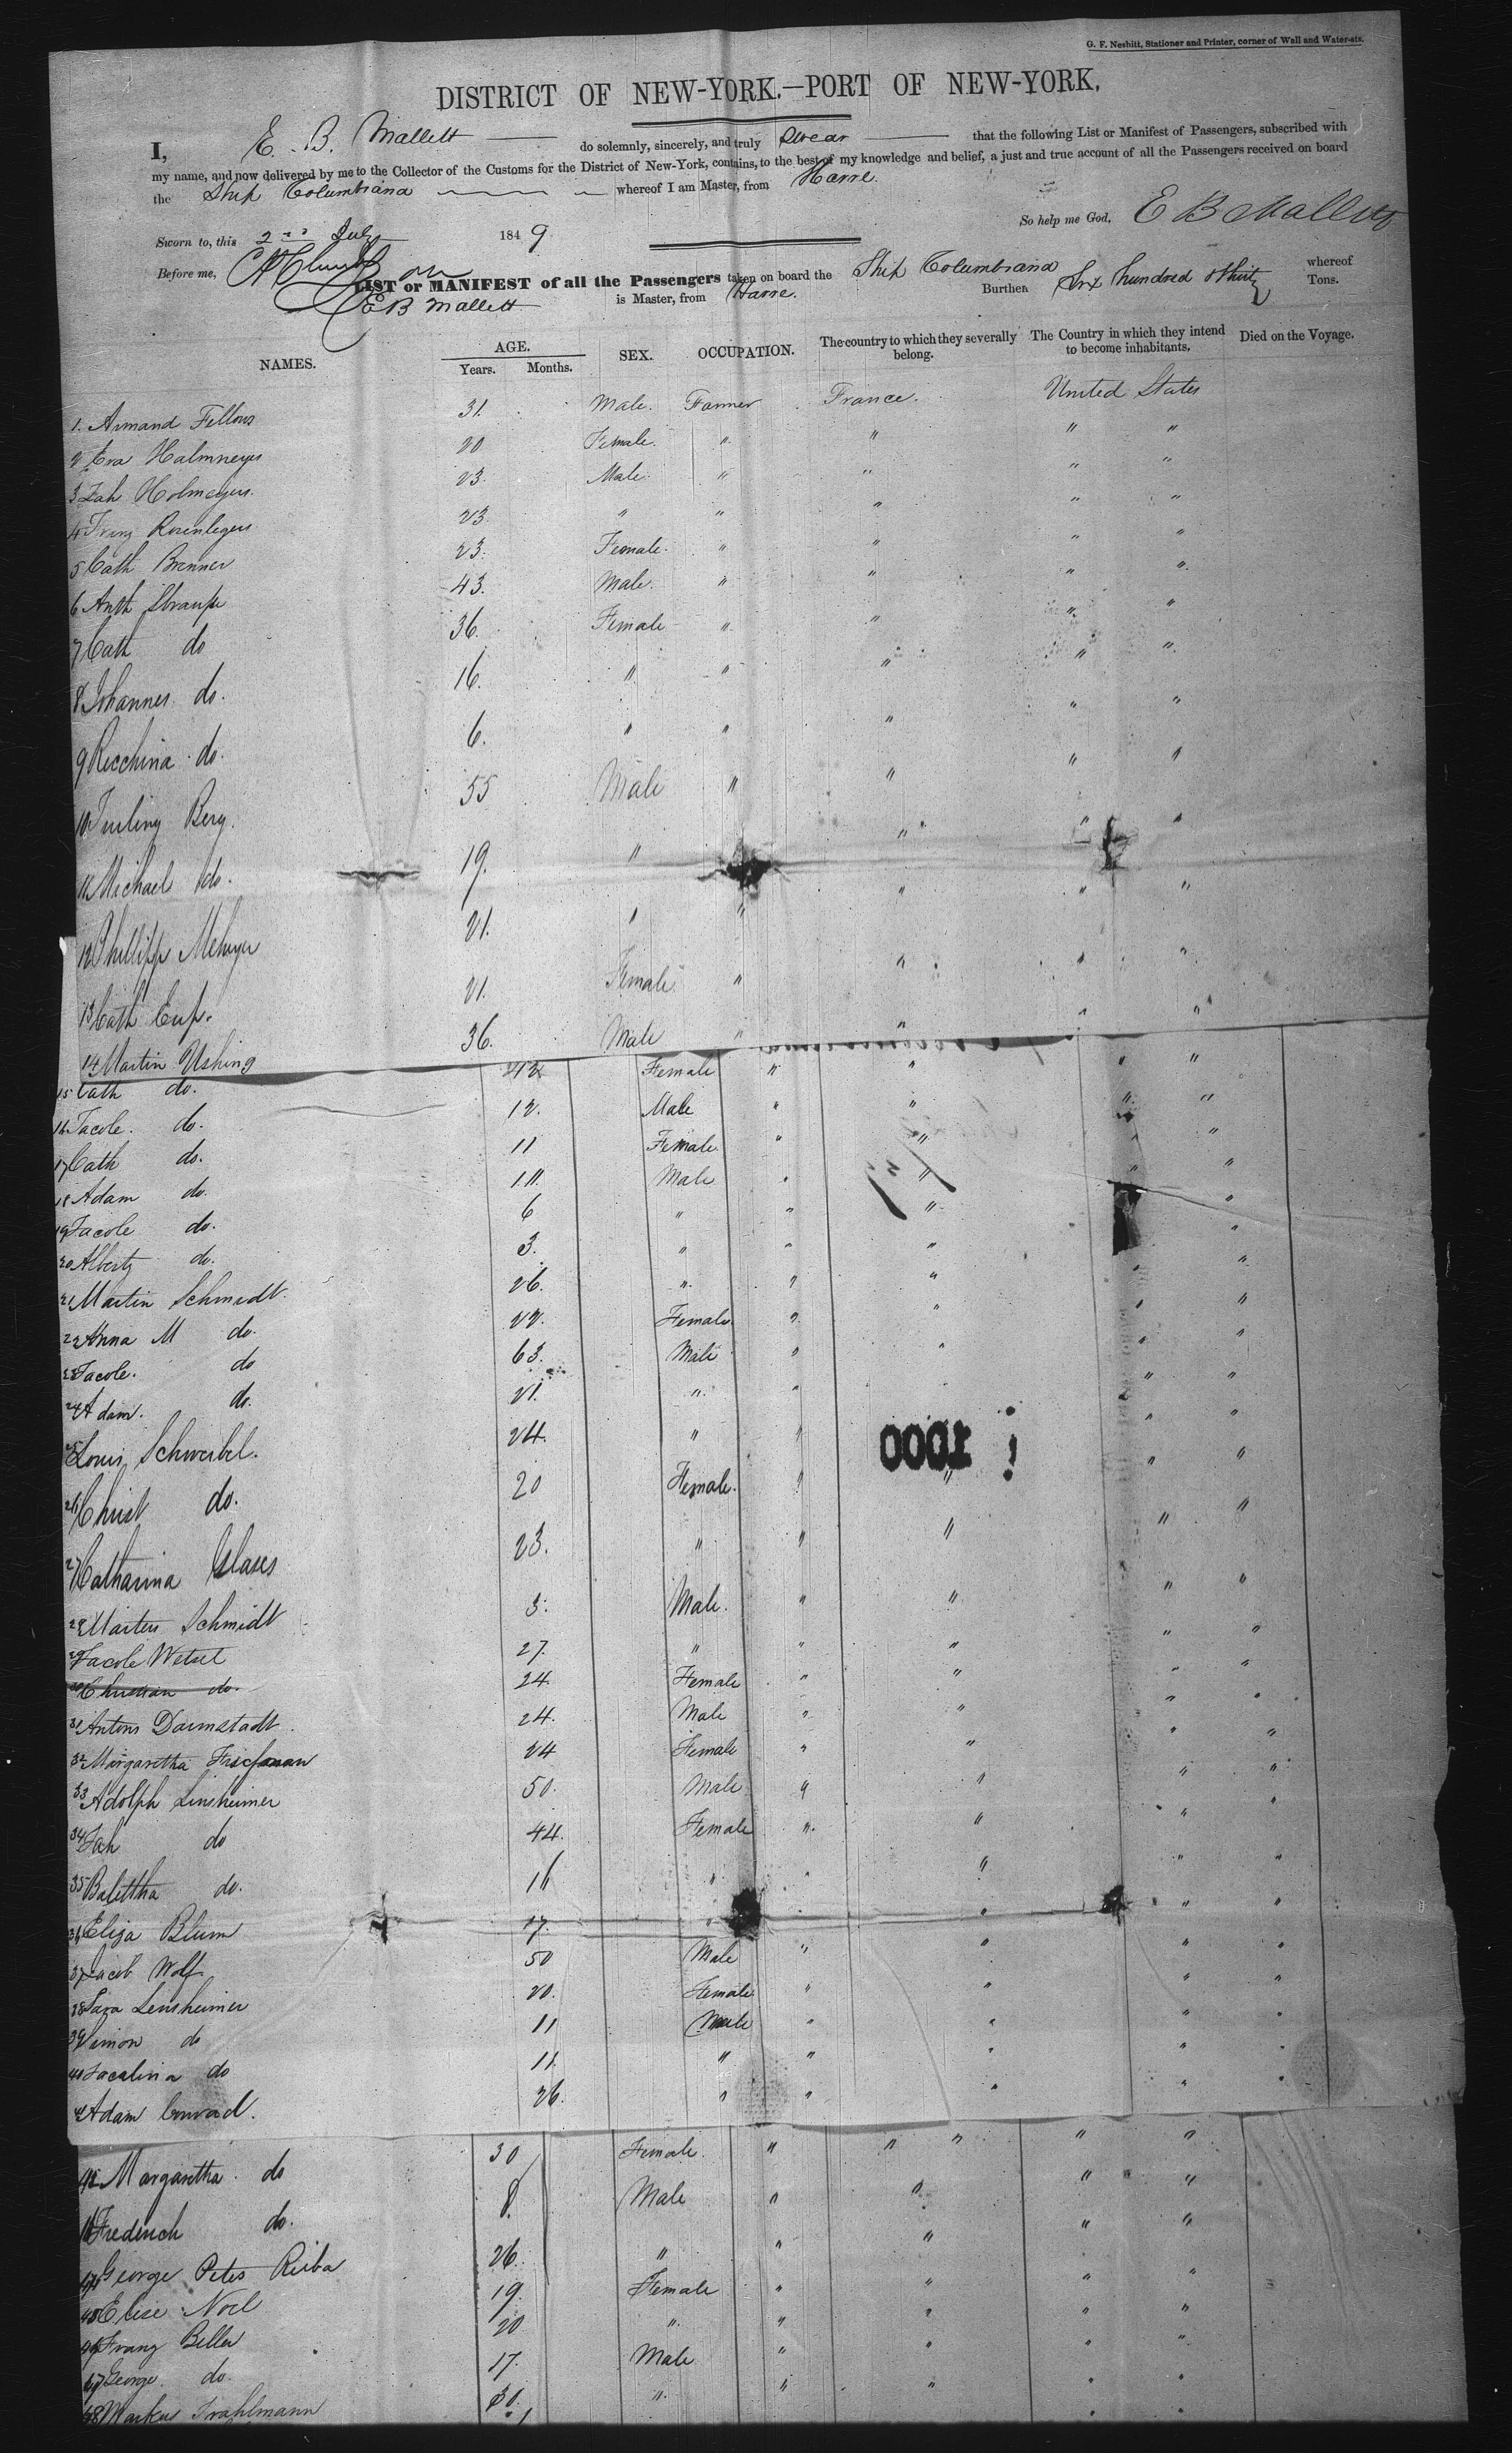 G. F. Nesbitt, Stationer and Printer, corner of Wall and Water-sts.
DISTRICT OF NEW-YORK.—PORT OF NEW-YORK.
I, E. B. Mallett do solemnly, sincerely, and truly Swear that the following List or Manifest of Passengers, subscribed with
my name, and now delivered by me to the Collector of the Customs for the District of New-York, contains, to the best of my knowledge and belief, a just and true account of all the Passengers received on board
the Ship Columbiana whereof I am Master, from Havre.
So help me God, E B Mallett
Sworn to, this 2nd July 1849
Before me,
LIST or MANIFEST of all the Passengers taken on board the Ship Columbiana whereof
E B Mallett is Master, from Havre. Burthen Six hundred & thirty Tons.
NAMES. AGE. SEX. OCCUPATION. The country to which they severally belong. The Country in which they intend to become inhabitants. Died on the Voyage.
Years. Months.
1. Armand Fellows 31. Male. Farmer France. United States
2 Eva 20 Female. " " " "
3 Holmeyers. 23. Male. " " " "
4 Franz 23. " " " " "
5 Cath Brenner 23. Female. " " " "
6 Anth 43. Male. " " " "
7 Cath do 36. Female " " " "
8 Johannes do. 16. " " " " "
9 do. 6. " " " " "
10 Berg. 55 Male " " " "
11 Michael do. 19. " " " "
12 Phillipp 21. " " " " "
13 Cath 21. Female " " " "
14 Martin Ushing 36. Male " " "
15 Cath do. 42 Female " " " "
16 Jacob. do. 12. Male " " " "
17 Cath do. 11 Female " " " "
18 Adam do. 11. Male " " " "
19 Jacob do. 6 " " " "
20 Alberty do. 3. " " " "
21 Martin Schmidt. 26. " " " " "
22 Anna M do. 22. Female " " " "
23 Jacob. do 63. Male " " " "
24 Adam. do. 21. " " " "
25 Louis Schweibel. 24. " " " "
1000
26 Christ do. 20 Female. " " " "
27 Catharina 23. " " " " "
28 Schmidt 3. Male. " " " "
29 Jacob Wetzel 27. " " " " "
30 Christian do. 24. Female " " " "
31 Antons Darmstadt. 24. Male " " " "
32 Margaretha 24 Female " " " "
33 Adolph Linsheimer 50. Male " " " "
34 do 44. Female " " " "
35 Balittha do. 16 " " " " "
36 Eliza Blum 17. " " " "
37 Jacob Wolf 50 Male " " " "
38 Sara Lensheimer 20. Female " " " "
39 Simon do 11 Male " " " "
40 Jacalina do 11. " " " " "
41 Adam Conrad. 26. " " " " "
42 Margaretha. do 30 Female. " " " " "
43 Frederich do. 8. Male " " " "
44 George Peter Reiba 26. " " " " "
45 Elise Noel 19. Female " " " "
46 Franz Beller 20 " " " " "
47 George. do. 17. Male " " " "
48 Markus Trahlmann 30. " " " " "